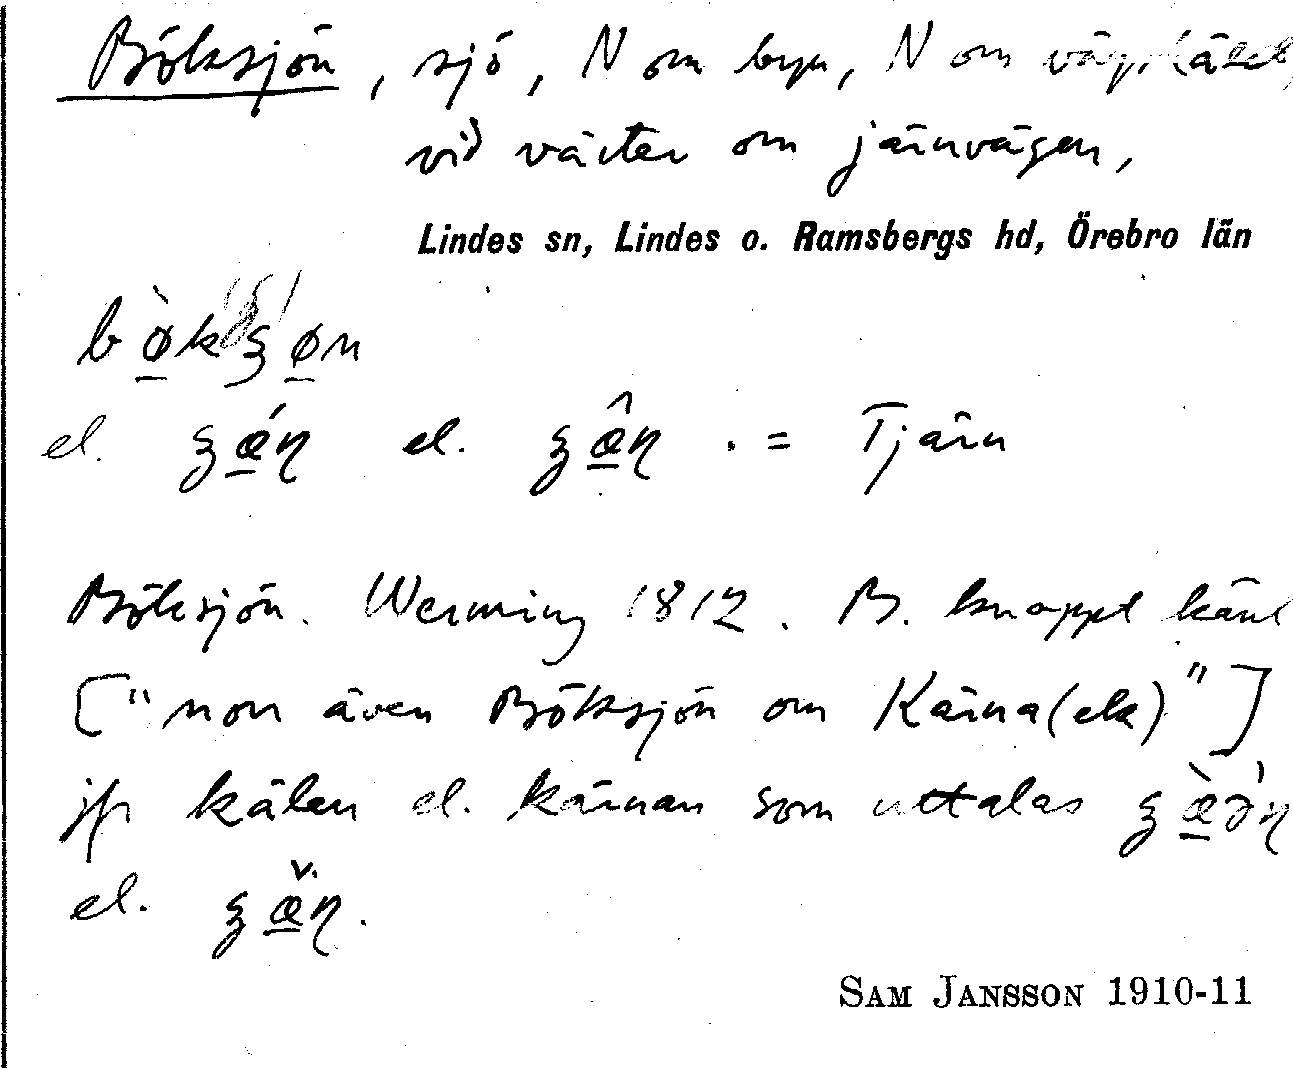 Böksjön, sjö, N om byn, N om vägskälet,
vid väster om järnvägen,
Lindes sn, Lindes o. Ramsbergs hd, Örebro län
el. el. . = Tjärn
Böksjön. Werming 1812. B. knappt känt
["mon även Böksjön om Kärna(ek)"]
jfr kälen el. kärnan som uttalas
el.
SAM JANSSON 1910-11